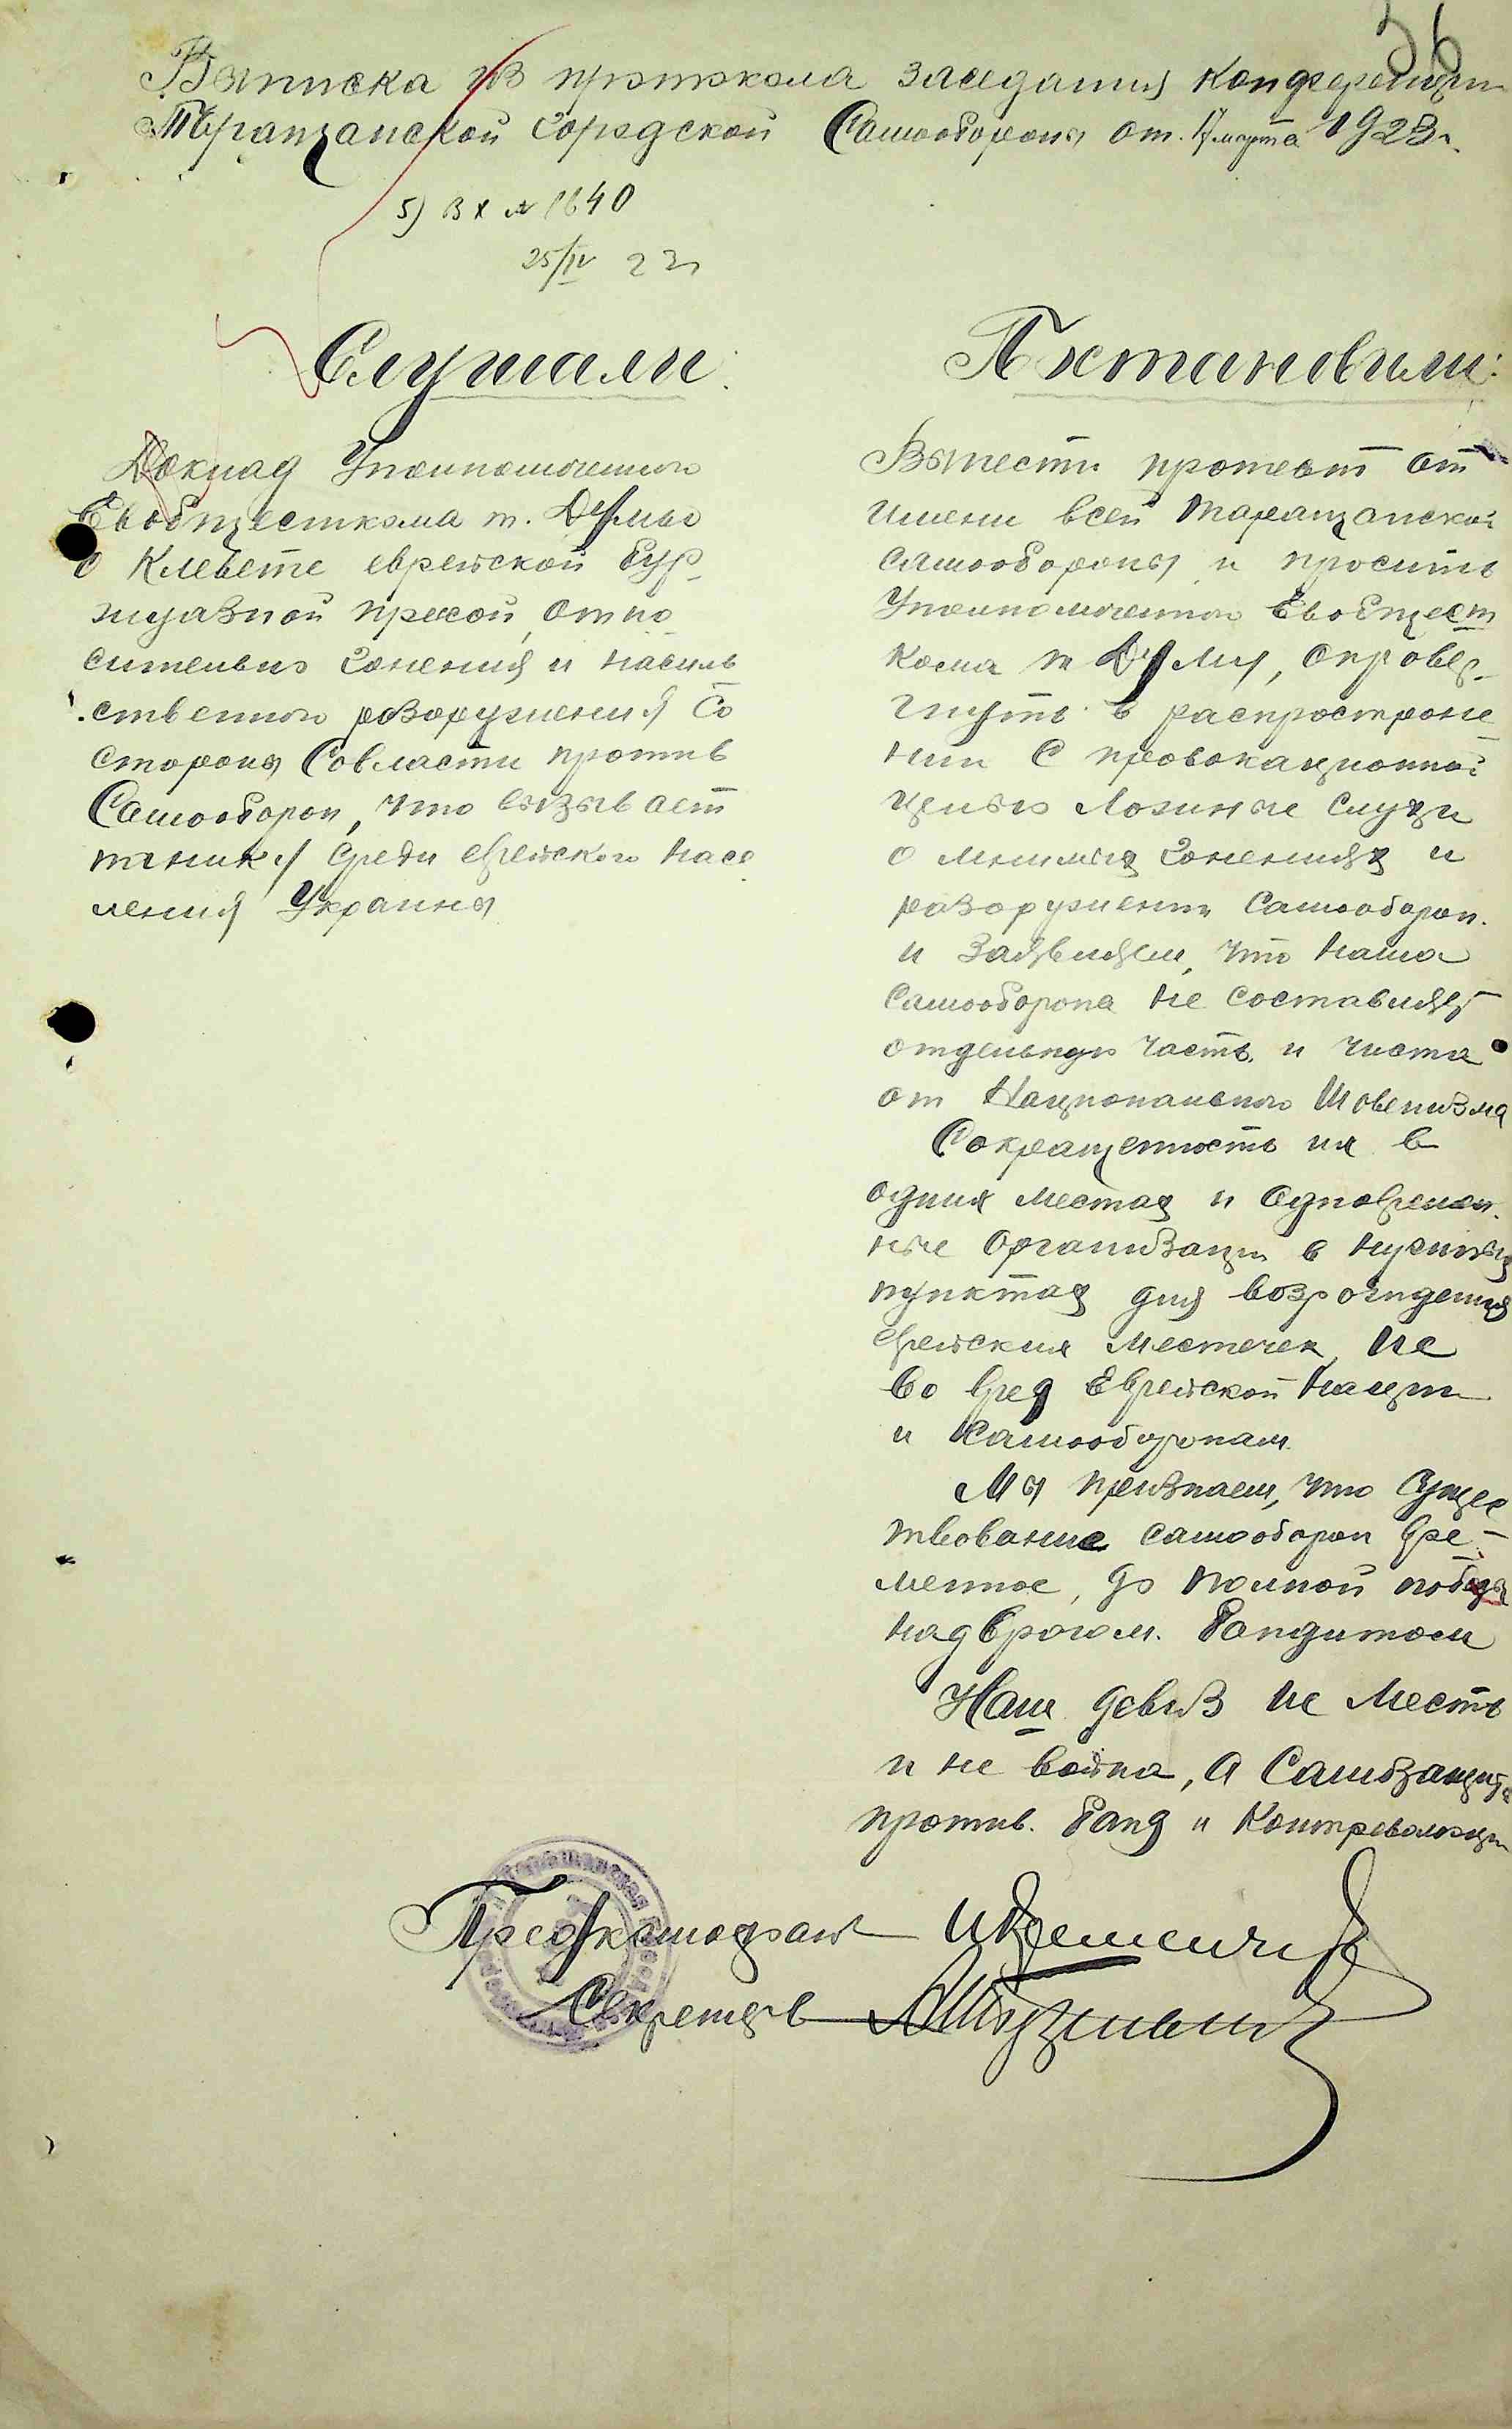 56
Выписка из протокола заседания Конференции
Таращанской Городской Самообороны от 17 марта 1923 г.
5) Вх № 1640
25/IV 23 г
Слушали:
Доклад Уполномоченного
Евобщесткома т.
о Клевете еврейской бур-
жуазной пресой, отно-
сительно Гонения и насиль
ственного разоружения Со
стороны Совласти против
Самооборон, что вызывает
панику среди еврейского насе
ления Украины
Постановили:
Вынести протест от
имени всей Таращанской
самообороны и просить
Уполномоченного Евобщест
кома т , опровер-
гнуть в распростране-
нии С провокационной
целью Ложные слухи
о мнимых Гонениях и
разоружении Самооборон.
и Заявляем, что наша
самооборона не составляет
отдельную часть и чиста
от Национального Шовенизма
Сокращенность их в
одних местах и Одновремен-
ные Организации в нужных
пунктах для возрождения
еврейских местечек, не
во вред Еврейской нации
и Самооборонам.
Мы признаем, что Сущес
твование самооборон вре-
менное, до полной победы
над врагом. Бандитом
Наш девиз не Месть
и не война, а Самозащита
против. Банд и Контреволюции
Секретарь